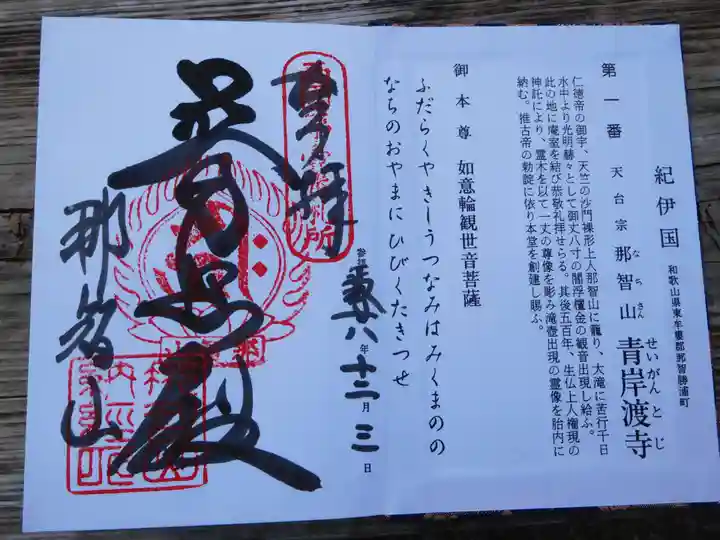 紀伊国
和歌山県東牟婁郡那智勝浦町
第一番 天台宗 那智山 青岸渡寺
なちさん せいがんとじ
仁徳帝の御宇、天竺の沙門裸形上人那智山に籠り、大滝に苦行千日
水中より光明赫々として御丈八寸の閻浮檀金の観音出現し給ふ。
此の地に庵室を結び恭敬礼拝せらる。其後五百年、生仏上人権現の
神託により、霊木を以て一丈の尊像を彫み滝壺出現の霊像を胎内に
納む。推古帝の勅定に依り本堂を創建し賜ふ。
御本尊 如意輪観世音菩薩
ふだらくやきしうつなみはみくまのの
なちのおやまにひびくたきつせ
奉拝
参拝 八年十二月三日
普照殿
那智山